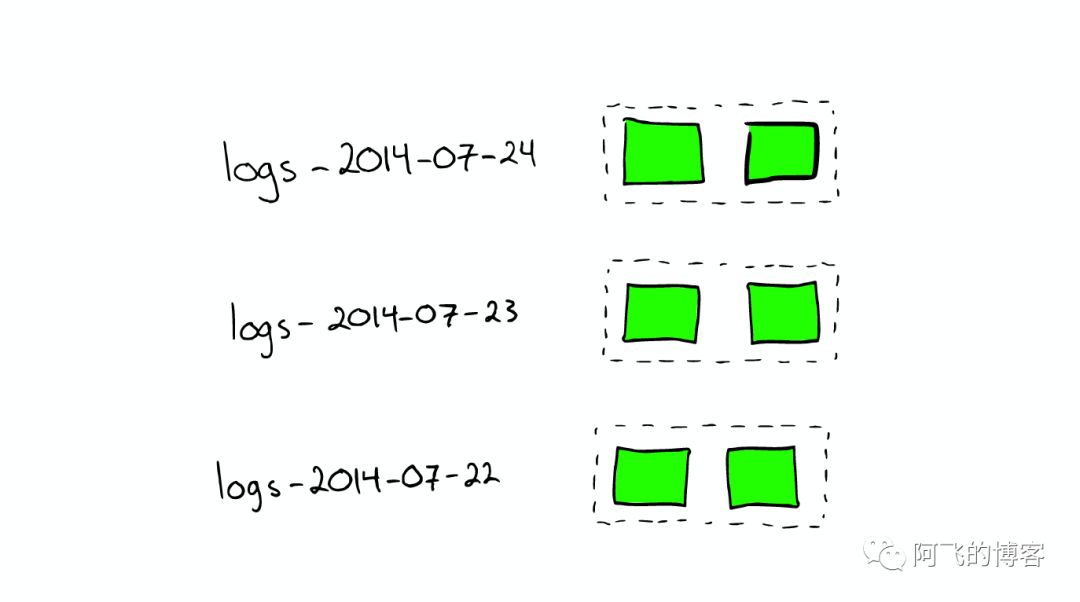 logs-2014-07-24
logs-2014-07-23
logs-2014-07-22
阿飞的博客